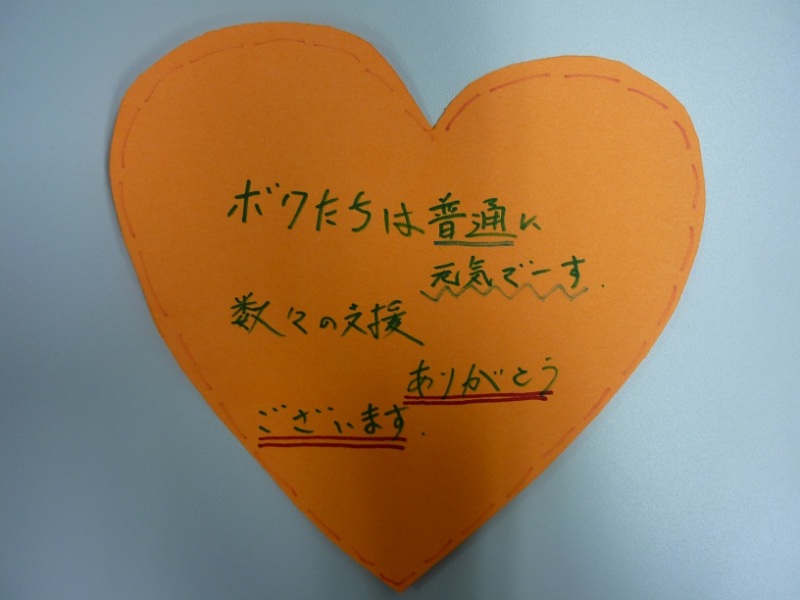 ボクたちは普通に
元気でーす.
数々の支援
ありがとう
ございます.